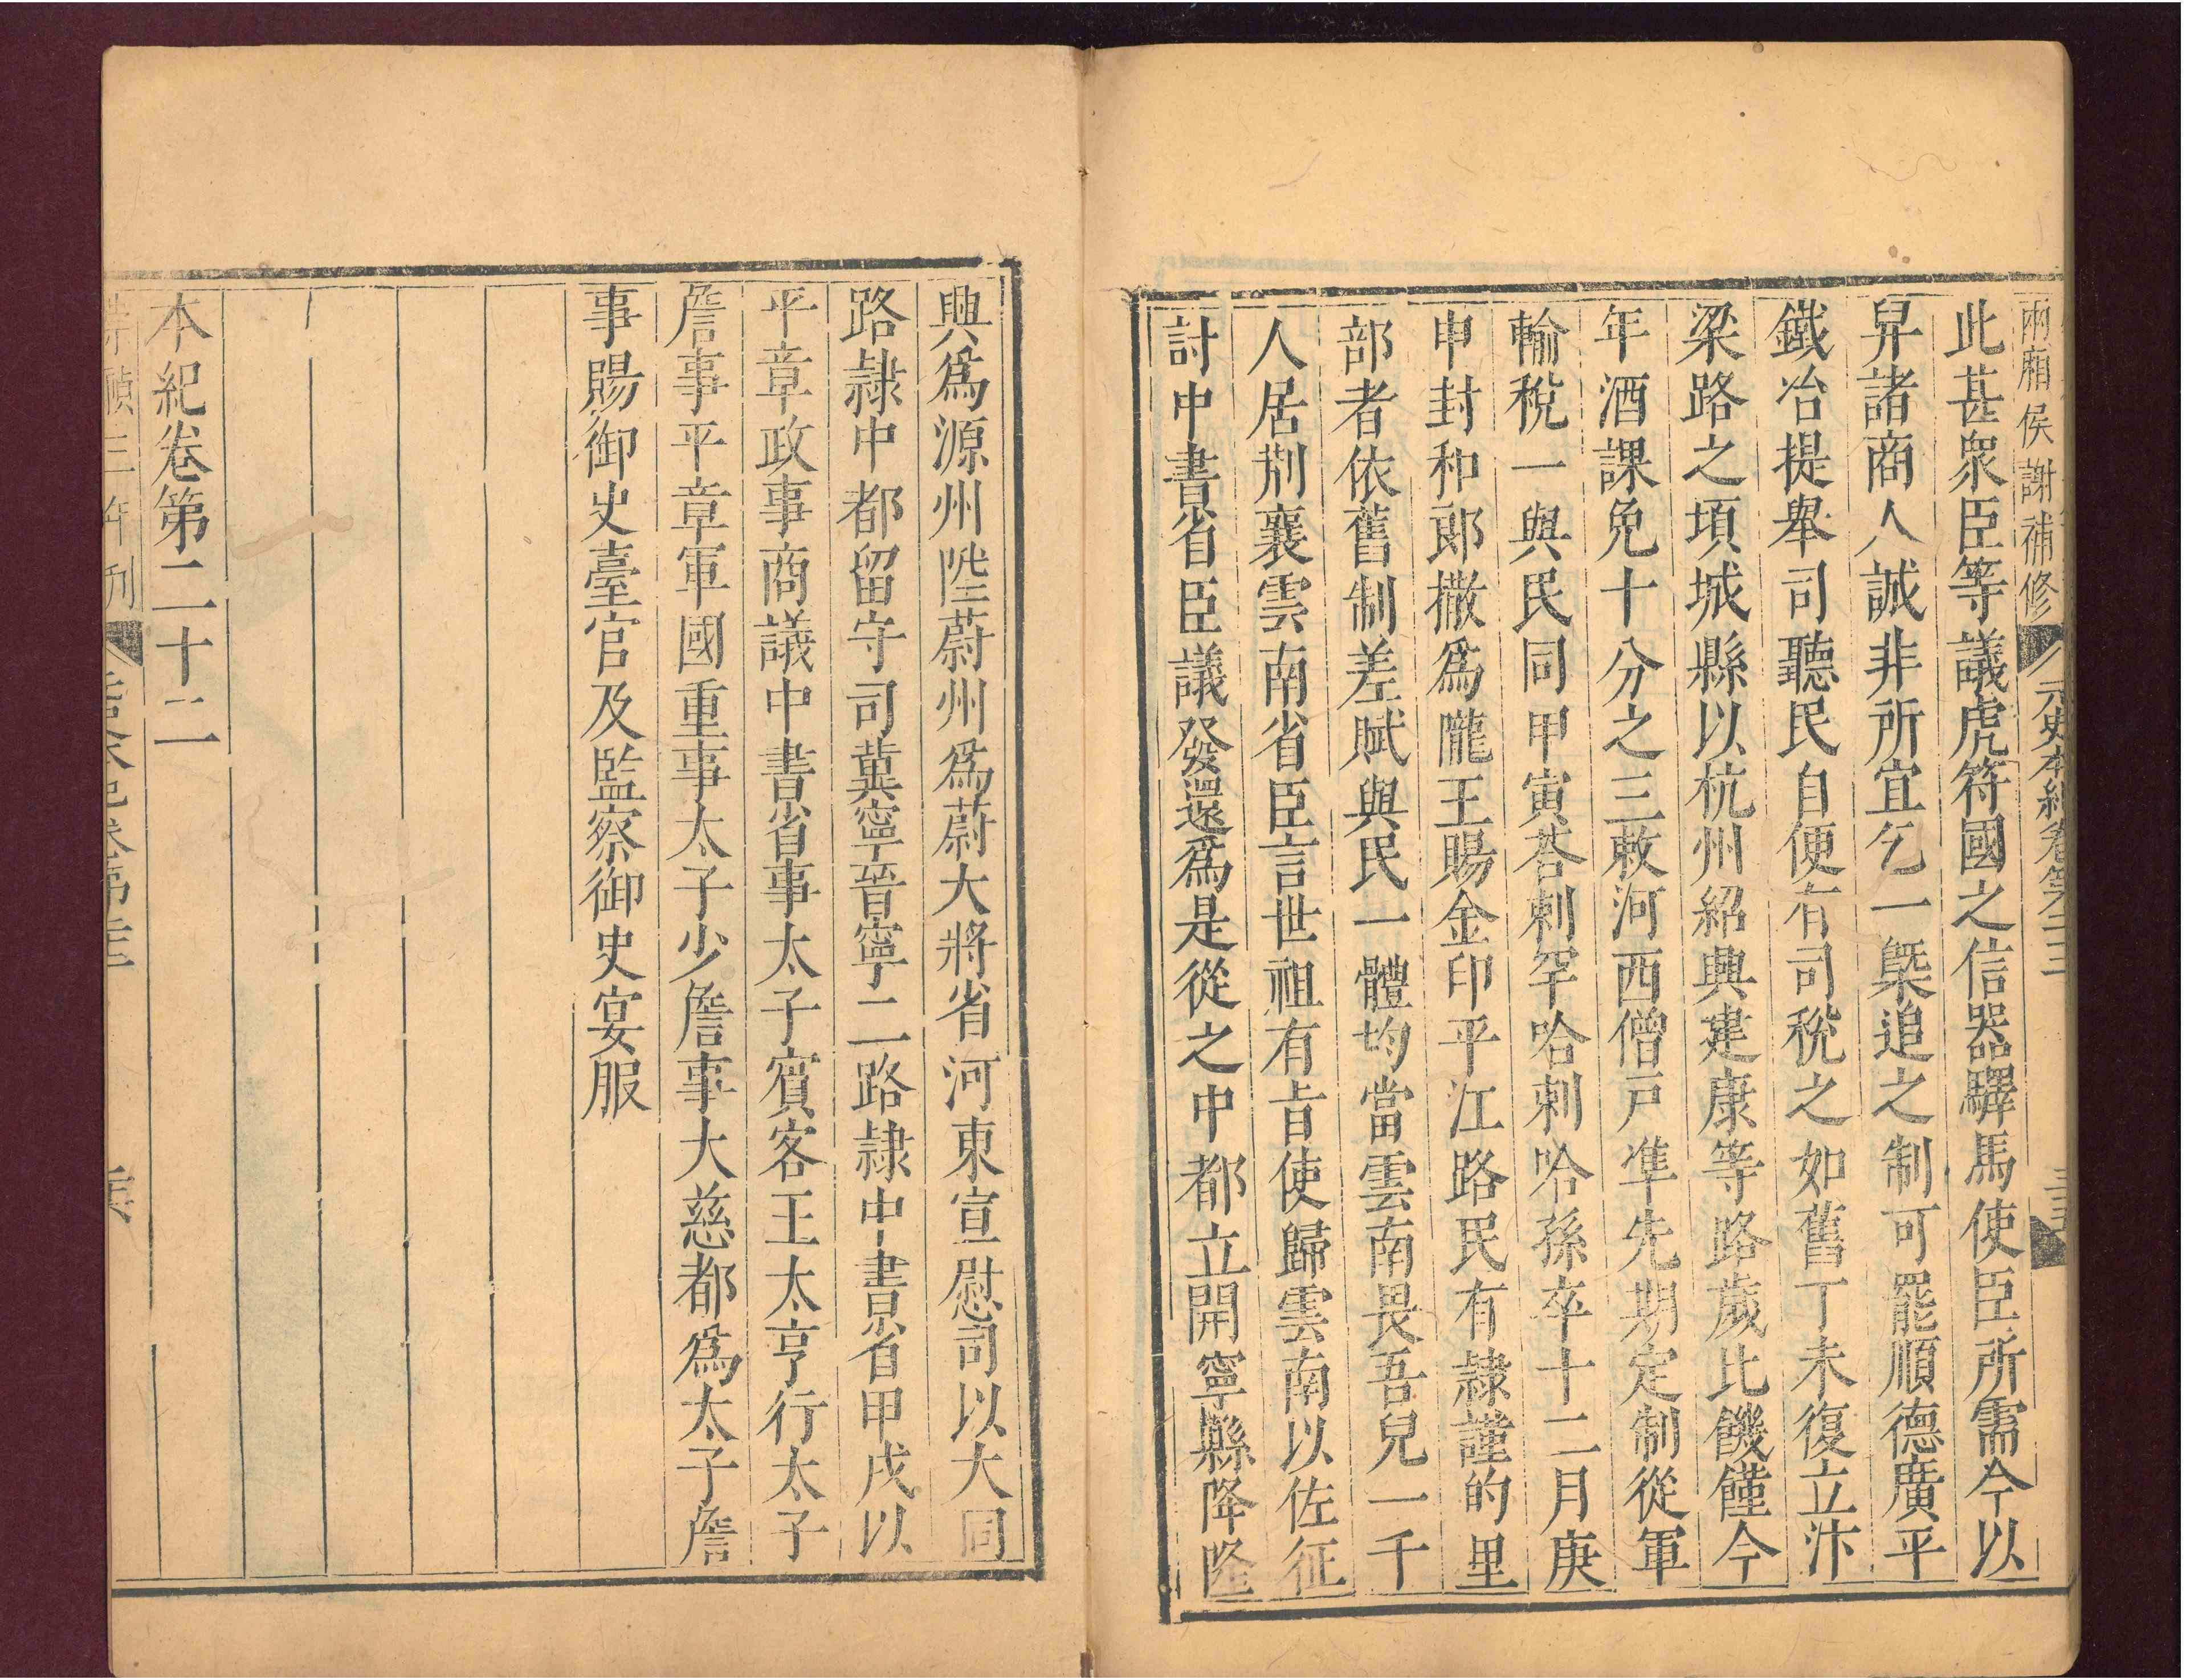 兩廂侯謝補修 元史本紀卷第二十二 三十五
此甚衆臣等議虎符國之信器驛馬使臣所需今以
昇諸商人誠非所宜乞一槩追之制可罷順德廣平
鐵冶提舉司聽民自便有司稅之如舊丁未復立汴
梁路之項城縣以杭州紹興建康等路歲比饑饉今
年酒課免十分之三敕河西僧戶準先期定制從軍
輸稅一與民同甲寅荅剌罕哈剌哈孫卒十二月庚
申封和郎撒爲隴王賜金印平江路民有隸謹的里
部者依舊制差賦與民一體均當雲南畏吾兒一千
人居荆襄雲南省臣言世祖有旨使歸雲南以佐征
討中書省臣議發還爲是從之中都立開寧縣降隆
興爲源州陞蔚州爲蔚大將省河東宣慰司以大同
路隸中都留守司冀寧晉寧二路隸中書省甲戌以
平章政事商議中書省事太子賓客王太亨行太子
詹事平章軍國重事太子少詹事大慈都爲太子詹
事賜御史臺官及監察御史宴服
本紀卷第二十二
三年刊